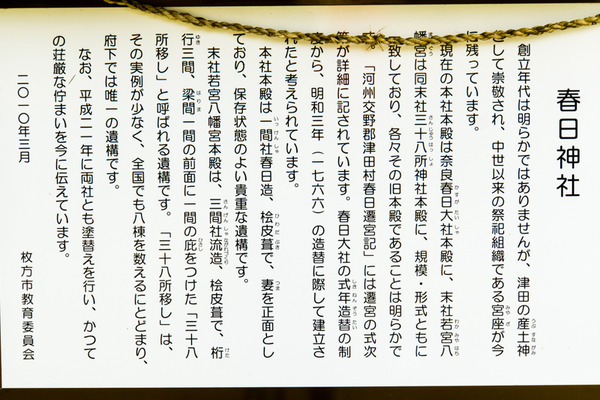 春日神社
創立年代は明らかではありませんが、津田の産土神
して崇敬され、中世以来の祭祀組織である宮座が今
に残っています。
現在の本社本殿は奈良春日大社本殿に、末社若宮八
幡宮は同末社三十八所神社本殿に、規模・形式ともに
致しており、各々その旧本殿であることは明らかで
。「河州交野郡津田村春日遷宮記」には遷宮の式次
が詳細に記されています。春日大社の式年造替の制
から、明和三年（一七六六）の造替に際して建立さ
れたと考えられています。
本社本殿は一間社春日造、桧皮葺で、妻を正面とし
ており、保存状態のよい貴重な遺構です。
末社若宮八幡宮本殿は、三間社流造、桧皮葺で、桁
行三間、梁間一間の前面に一間の庇をつけた「三十八
所移し」と呼ばれる遺構です。「三十八所移し」は、
その実例が少なく、全国でも八棟を数えるにとどまり、
府下では唯一の遺構です。
なお、平成二一年に両社とも塗替えを行い、かつて
の荘厳な佇まいを今に伝えています。
二〇一〇年三月
枚方市教育委員会